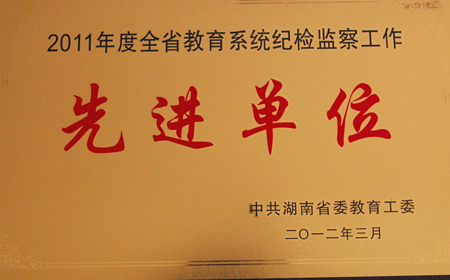 2011年度全省教育系统纪检监察工作
先进单位
中共湖南省委教育工委
二〇一二年三月